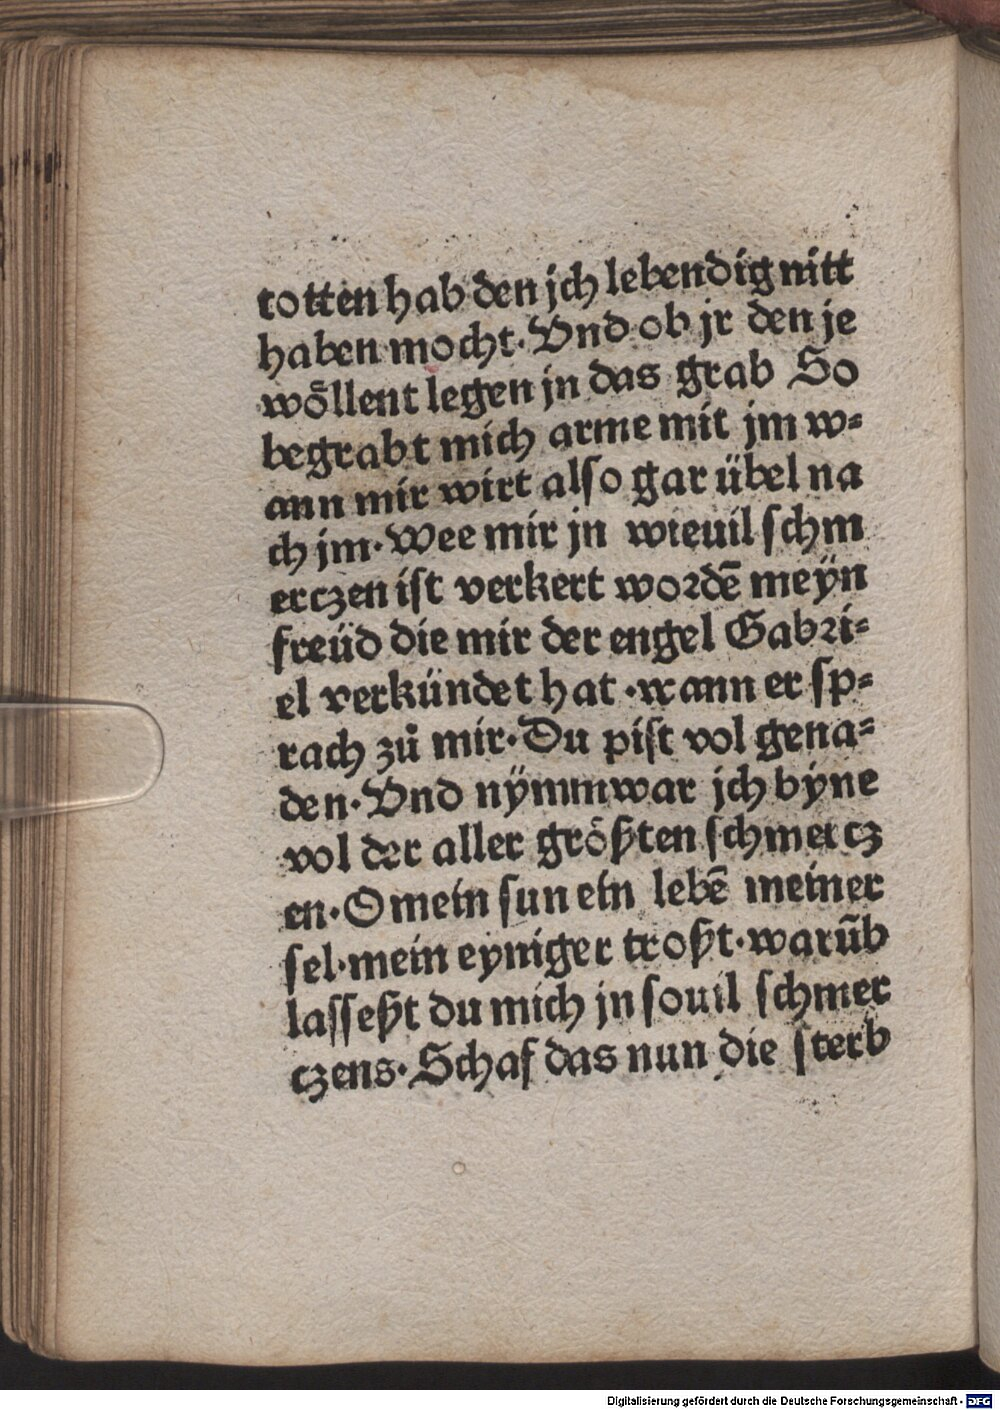 totten hab den jch lebendig nitt
haben mocht· Vnd ob jr den je
wo̊llent legen jn das grab So
begrabt mich arme mit jm w⸗
ann mir wirt also gar übel na
ch jm· Wee mir jn wieuil schm
erczen ist verkert wordē meÿn
freüd die mir der engel Gabri⸗
el verkündet hat ·wann er sp⸗
rach zů mir· Du pist vol gena⸗
den· Vnd nÿmmwar jch byne
vol der aller größten schmercz
en· O mein sun ein lebē meiner
sel·mein eyniger troßt·warūb
lasseßt du mich jn souil schmer
czens· Schaf das nun die sterb
Digitalisierung gefördert durch die Deutsche Forschungsgemeinschaft - DFG